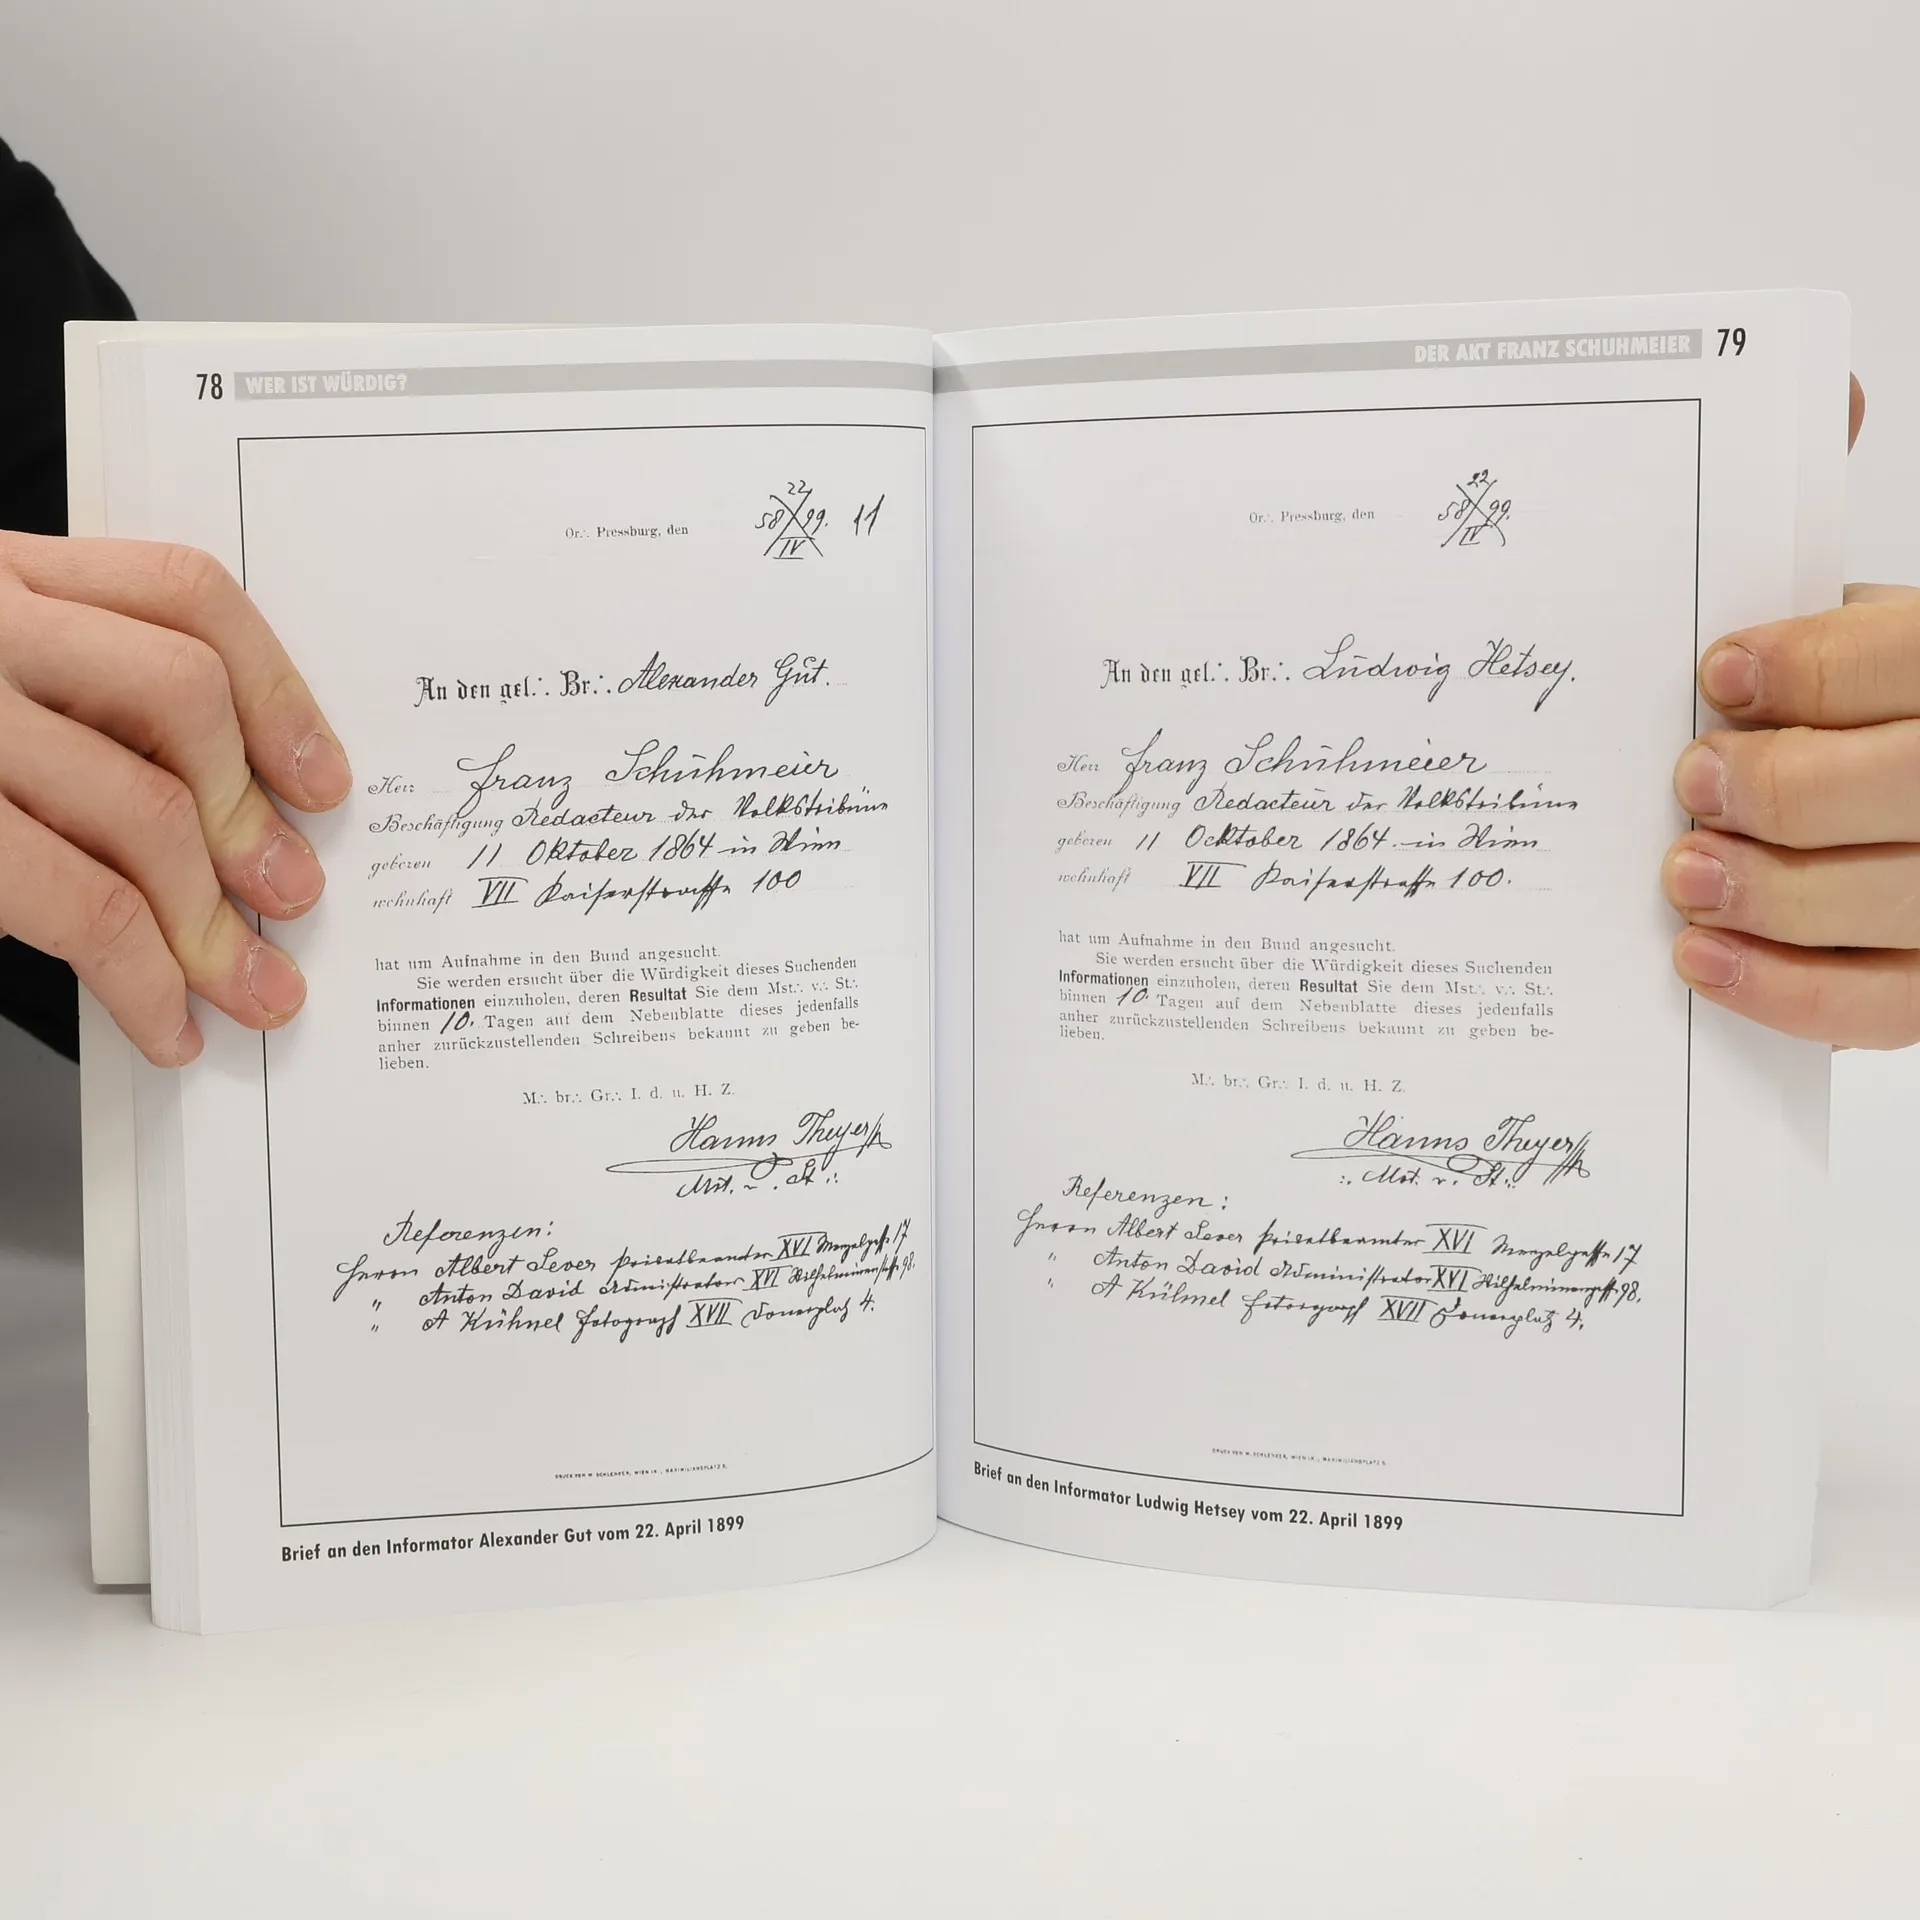 78 WER IST WÜRDIG?
22
58 99. 11
IV
Or∴ Pressburg, den
An den gel∴ Br∴ Alexander Gut.
Herr Franz Schuhmeier
Beschäftigung Redacteur der Volkstribüne
geboren 11 Oktober 1864 in Wien
wohnhaft VII Kaiserstrasse 100
hat um Aufnahme in den Bund angesucht.
Sie werden ersucht über die Würdigkeit dieses Suchenden
Informationen einzuholen, deren Resultat Sie dem Mst∴ v∴ St∴
binnen 10. Tagen auf dem Nebenblatte dieses jedenfalls
anher zurückzustellenden Schreibens bekannt zu geben be-
lieben.
M∴ br∴ Gr∴ I. d. u. H. Z.
Hanns Theyer
Mst. v. St∴
Referenzen:
Herrn Albert Sever Privatbeamter XVI Menzelgasse 17
" Anton David Administrator XVI Wilhelminenstrasse 98.
" A Kühnel Fotograf XVII 4.
DRUCK VON M. SCHLENKER, WIEN IX., MAXIMILIANSPLATZ 5.
Brief an den Informator Alexander Gut vom 22. April 1899
DER AKT FRANZ SCHUHMEIER 79
22
58 99.
IV
Or∴ Pressburg, den
An den gel∴ Br∴ Ludwig Hetsey.
Herr Franz Schuhmeier
Beschäftigung Redacteur der Volkstribüne
geboren 11 Ocktober 1864 in Wien
wohnhaft VII Kaiserstrasse 100.
hat um Aufnahme in den Bund angesucht.
Sie werden ersucht über die Würdigkeit dieses Suchenden
Informationen einzuholen, deren Resultat Sie dem Mst∴ v∴ St∴
binnen 10. Tagen auf dem Nebenblatte dieses jedenfalls
anher zurückzustellenden Schreibens bekannt zu geben be-
lieben.
M∴ br∴ Gr∴ I. d. u. H. Z.
Hanns Theyer
Mst. v. St∴
Referenzen:
Herrn Albert Sever Privatbeamter XVI Menzelgasse 17
" Anton David Administrator XVI 98.
" A Kühnel XVII 4.
DRUCK VON M. SCHLENKER, WIEN IX., MAXIMILIANSPLATZ 5.
Brief an den Informator Ludwig Hetsey vom 22. April 1899